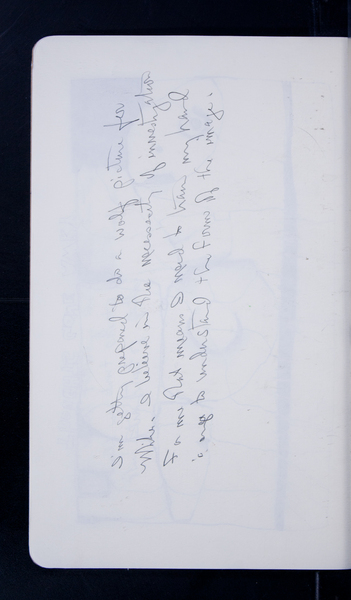 I'm getting prepared to do a wolf picture for
While. I believe in the necessity of investigation
For me that means I need to train my hand
to understand the form of the image.